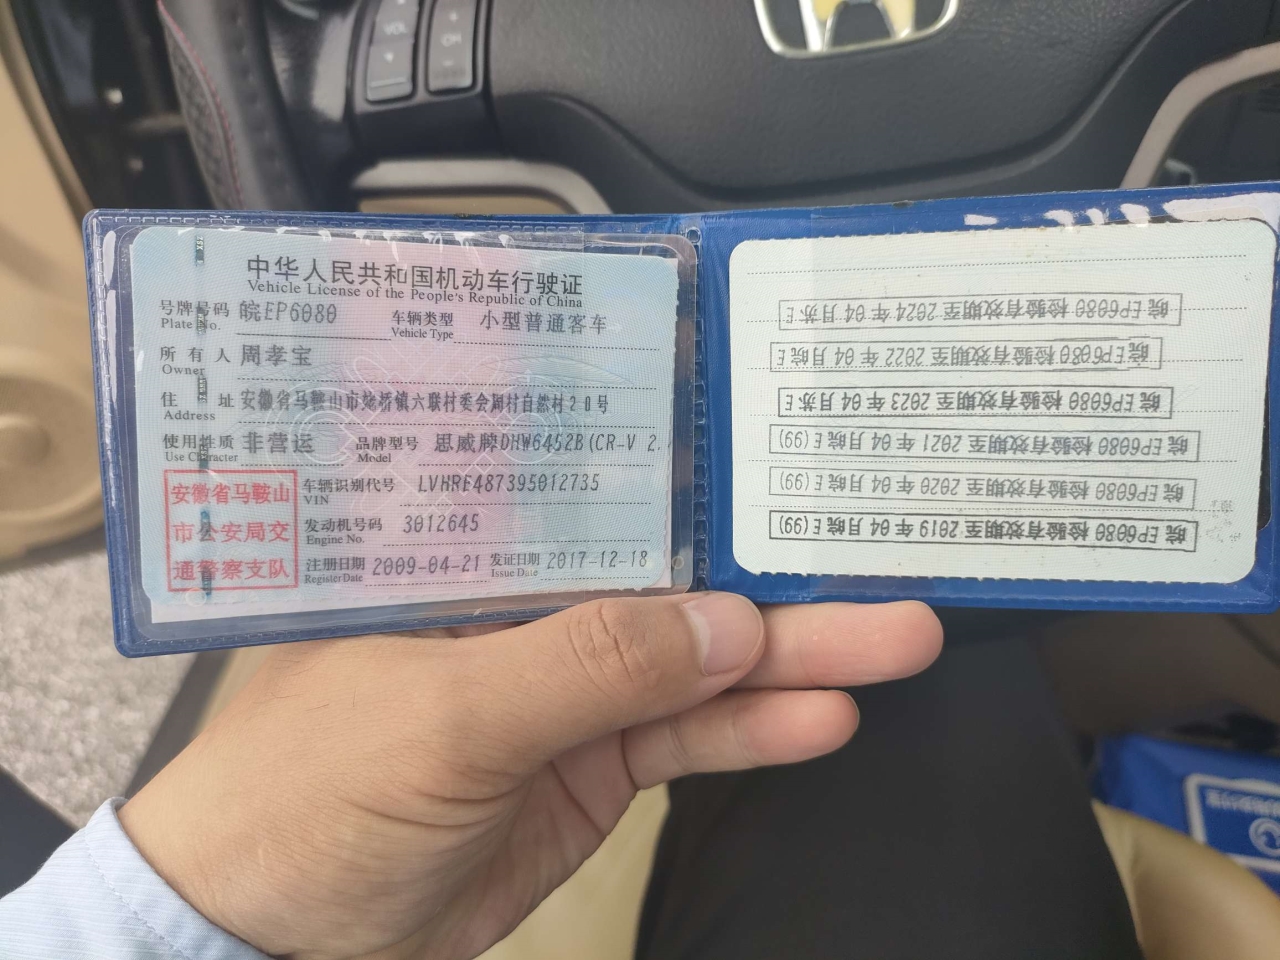 VOL
CH
中华人民共和国机动车行驶证
Vehicle License of the People's Republic of China
号牌号码 皖EP6080 车辆类型 小型普通客车
Plate No. Vehicle Type
所有人 周孝宝
Owner
住址 安徽省马鞍山市 桥镇六联村委会周村自然村20号
Address
使用性质 非营运 品牌型号 思威牌DHW6452B(CR-V 2.
Use Character Model
安徽省马鞍山
市公安局交
通警察支队
车辆识别代号 LVHRE487395012735
VIN
发动机号码 3012645
Engine No.
注册日期 2009-04-21 发证日期 2017-12-18
Register Date Issue Date
皖EP6080 检验有效期至 2019年04月皖E(99)
皖EP6080 检验有效期至 2020年04月皖E(99)
皖EP6080 检验有效期至 2021年04月皖E(99)
皖EP6080 检验有效期至 2023年04月苏E
皖EP6080 检验有效期至 2022年04月皖E
皖EP6080 检验有效期至 2024年04月苏E